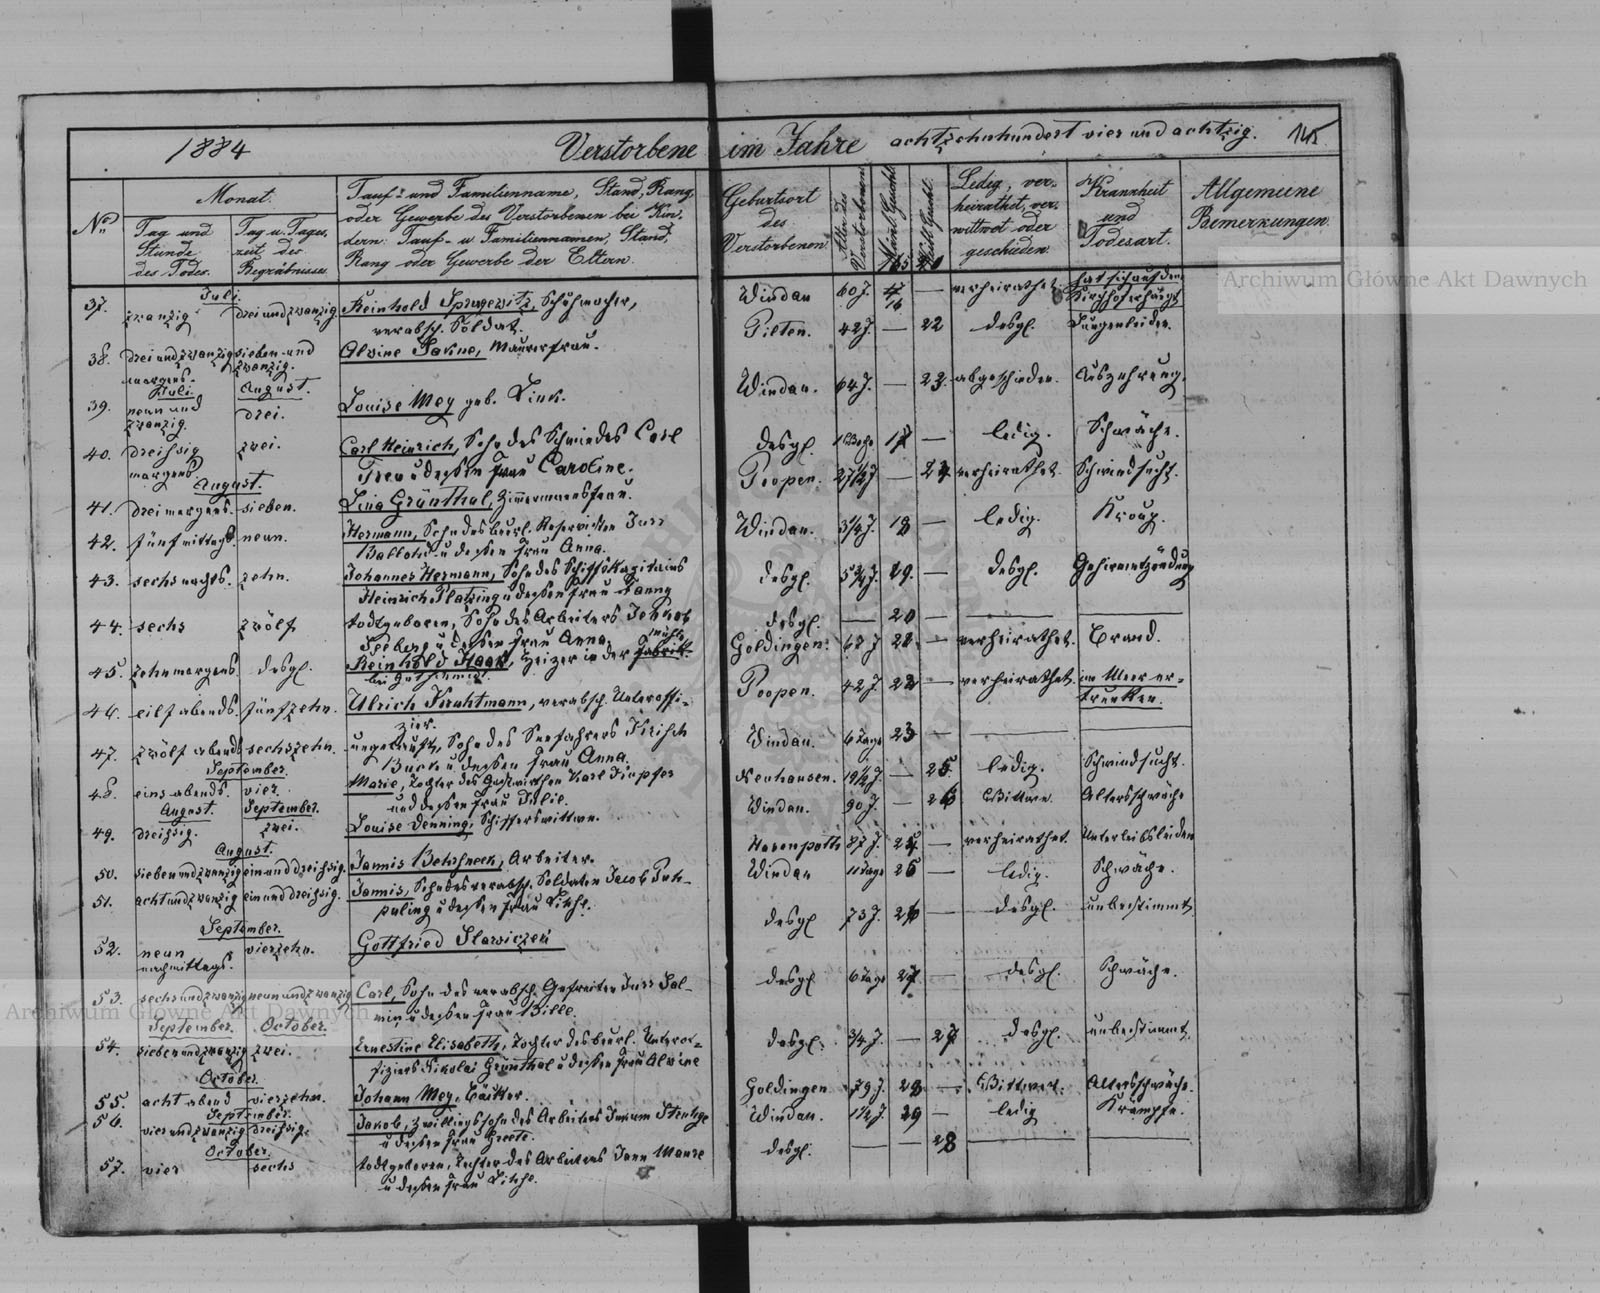 1884 Verstorbene im Jahre achtzehnhundert vier und achtzig. 145
No Monat.
Tag und Stunde des Todes.
Tag u. Tages-zeit des Begräbnisses.
Tauf- und Familienname, Stand, Rang
oder Gewerbe des Verstorbenen bei Kin-
dern: Tauf- u. Familiennamen, Stand,
Rang oder Gewerbe der Eltern.
Geburtsort des Verstorbenen.
Alter des Verstorbenen
Männl. Geschl.
Weibl. Geschl.
Ledig, ver-
heirathet, ver-
wittwet oder
geschieden.
Krankheit und Todesart.
Allgemeine Bemerkungen.
Juli.
37. zwanzig drei und zwanzig Reinhold Schuhmacher, Windau 60 J. — verheirathet. hat sich auf dem
verabsch. Soldat. Kirchhof erhängt
38. drei und zwanzig sieben und Alwine Maurerfrau. Pilten. 42 J. — 22 desgl. Lungenleiden.
morgens. zwanzig.
Juli August.
39. neun und drei. Louise Mey geb. Link. Windau. 64 J. — 23. abgeschieden. Auszehrung.
zwanzig.
40. dreissig zwei. Carl Heinrich, Sohn des Schmiedes Carl desgl. 17 — ledig. Schwäche.
morgens Treu u dessen Frau Caroline.
August.
41. drei morgens. sieben. Lina Grünthal, Zimmermannsfrau. Poopen. 27½ J. — 24 verheirathet. Schwindsucht.
42. fünf mittags. neun. Hermann, Sohn des beurl. Reservisten Windau. 3¼ J. 18 — ledig. Kroup.
u dessen Frau Anna.
43. sechs nachts. zehn. Johannes Hermann, Sohn des Schiffskapitains desgl. 5¾ J. 19. — desgl. Gehirnentzündung
Heinrich u dessen Frau Fanny
44. sechs zwölf todtgeboren, Sohn des Arbeiters desgl. — 20 — — —
u dessen Frau Anna.
45. zehn morgens desgl. Reinhold Heizer in der Fabrik. Goldingen. J 21 — verheirathet. Brand.
46. eilf abends. fünfzehn. Ulrich Kruhtmann, verabsch. Unteroffi- Poopen. 42 J. 22 — verheirathet im Meer er-
zier. trunken.
47. zwölf abends sechszehn. ungetauft, Sohn des Seefahrers Windau. 6 Tage 23 — — —
u dessen Frau Anna.
September.
48. eins abends. vier. Marie, Tochter des Gastwirthen Karl Neuhausen. 19½ J. — 25. ledig. Schwindsucht.
und dessen Frau Julie.
August. September.
49. dreissig. zwei. Louise Denning, Schifferswittwe. Windau. 90 J. — 26 Wittwe. Altersschwäche
August.
50. sieben und zwanzig ein und dreissig. Jannis Arbeiter. Hasenpoth J. 24 — verheirathet. Unterleibsleiden
51. acht und zwanzig ein und dreissig. Jannis, Sohn des verabsch. Soldaten Jacob Puh- Windau 11 Tage 25 — ledig. Schwäche.
puling u dessen Frau
September.
52. neun vierzehn. Gottfried desgl 73 J. 26 — desgl. unbestimmt
nachmittags.
53. sechs und zwanzig neun und zwanzig Carl, Sohn des verabsch. Gefreiten desgl 6 Tage 27 — desgl. Schwäche.
u dessen Frau Bille.
September. October.
54. sieben und zwanzig zwei. Ernestine Elisabeth, Tochter des beurl. Unterof- desgl. ¾ J. — 27 desgl. unbestimmt
fiziers Nikolai Grünthal u dessen Frau Alwine
October.
55. acht abend vierzehn. Johann Mey, Goldingen 79 J. 28 — Wittwer. Altersschwäche.
September.
56. vier und zwanzig dreissig. Jakob, Zwillingssohn des Arbeiters Windau. 1½ J. 29 — ledig Krämpfe.
u dessen Frau Greete.
October.
57. vier sechs todtgeboren, Tochter des Arbeiters Jann desgl. — — 28 — —
u dessen Frau
Archiwum Główne Akt Dawnych
Archiwum Główne Akt Dawnych